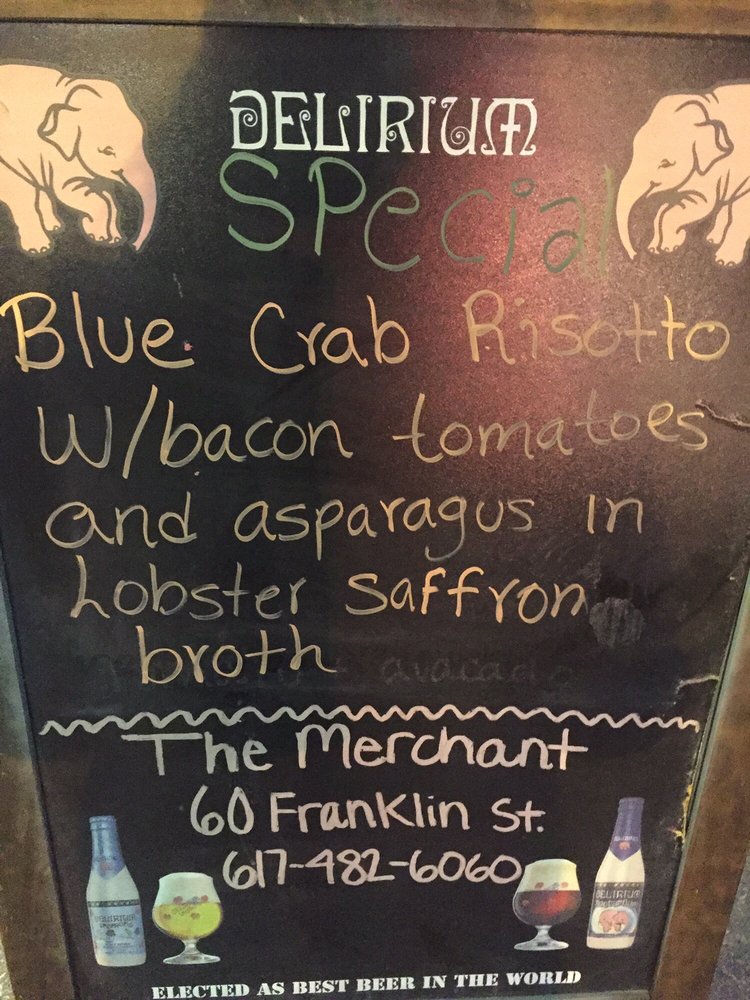 DELIRIUM
Special
Blue Crab Risotto
W/bacon tomatoes
and asparagus in
Lobster saffron
broth
avacado
The Merchant
60 Franklin St.
617-482-6060
DELIRIUM
DELIRIUM
ELECTED AS BEST BEER IN THE WORLD